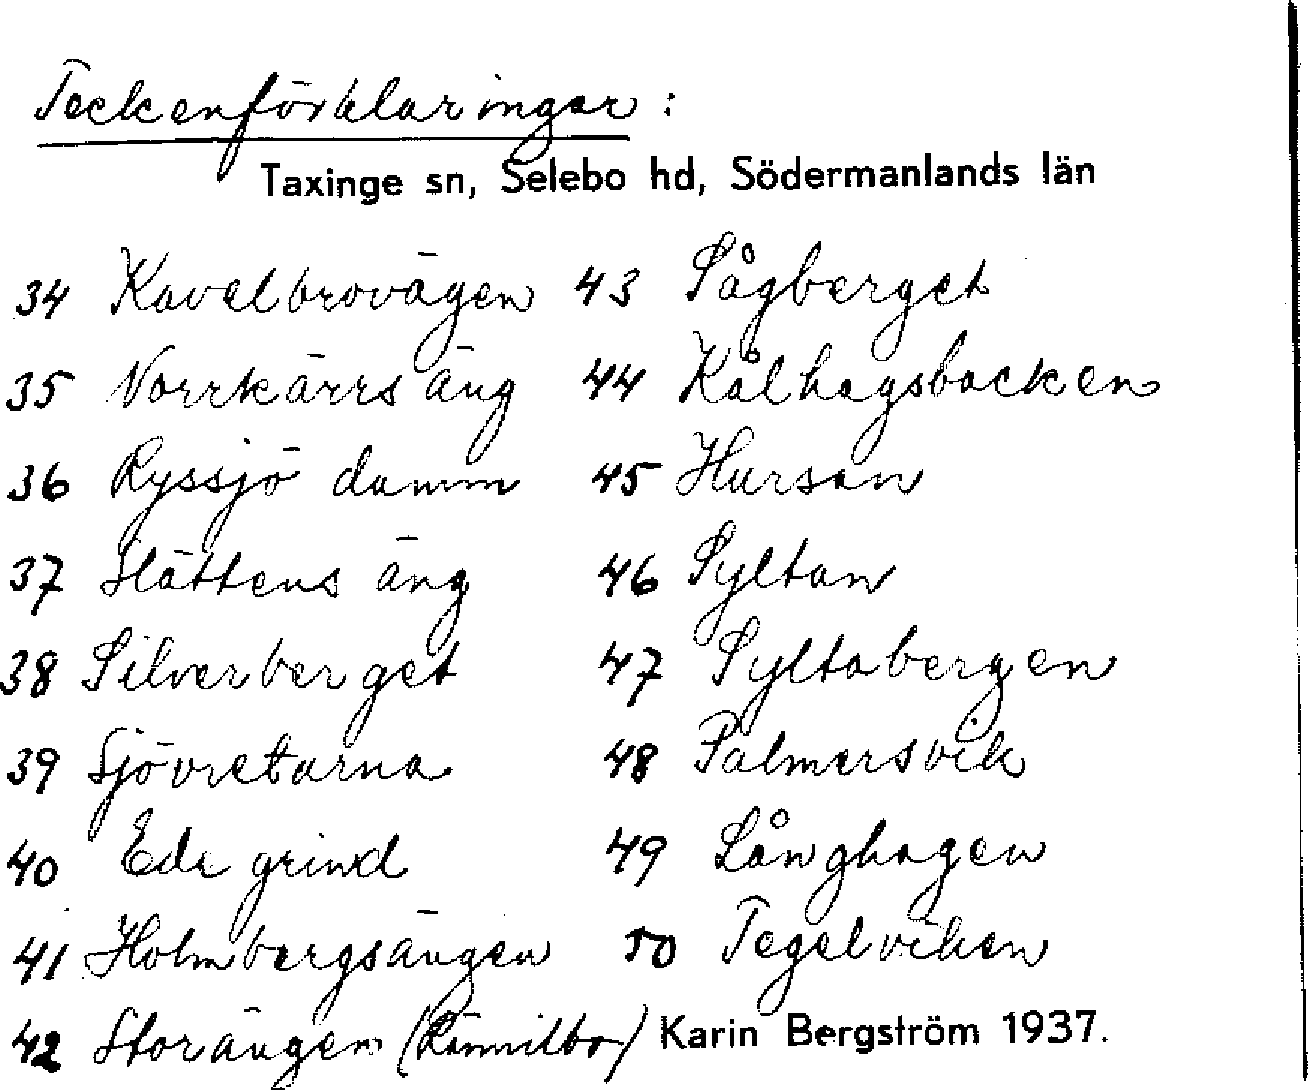 Teckenförklaringar:
Taxinge sn, Selebo hd, Södermanlands län
34 Kavelbrovägen
35 Norrkärrs äng
36 Ryssjö damm
37 Slättens äng
38 Silverberget
39 Sjövretarna
40 Eda grind
41 Holmbergsängen
42 Storängen
43 Sågberget
44 Kålhagsbacken
45 Hursan
46 Syltan
47 Syltabergen
48 Palmersvik
49 Långhagen
50 Tegelviken
Karin Bergström 1937.